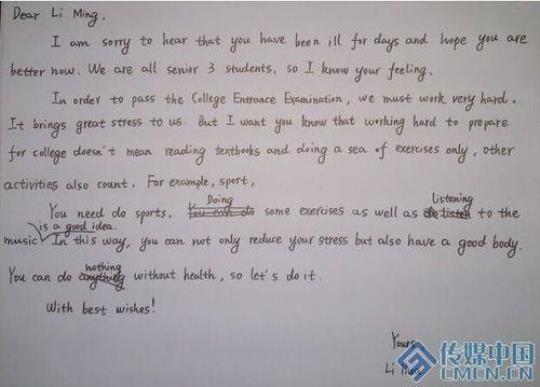 Dear Li Ming,
I am sorry to hear that you have been ill for days and hope you are
better now. We are all senior 3 students, so I know your feeling.
In order to pass the College Entrance Examination, we must work very hard.
It brings great stress to us. But I want you know that working hard to prepare
for college doesn't mean reading textbooks and doing a sea of exercises only, other
activities also count. For example, sport,
You need do sports. Doing some exercises as well as listening to the
music is a good idea. In this way, you can not only reduce your stress but also have a good body.
You can do nothing without health, so let's do it.
With best wishes!
Yours,
Li
传媒中国
CMCN.CN